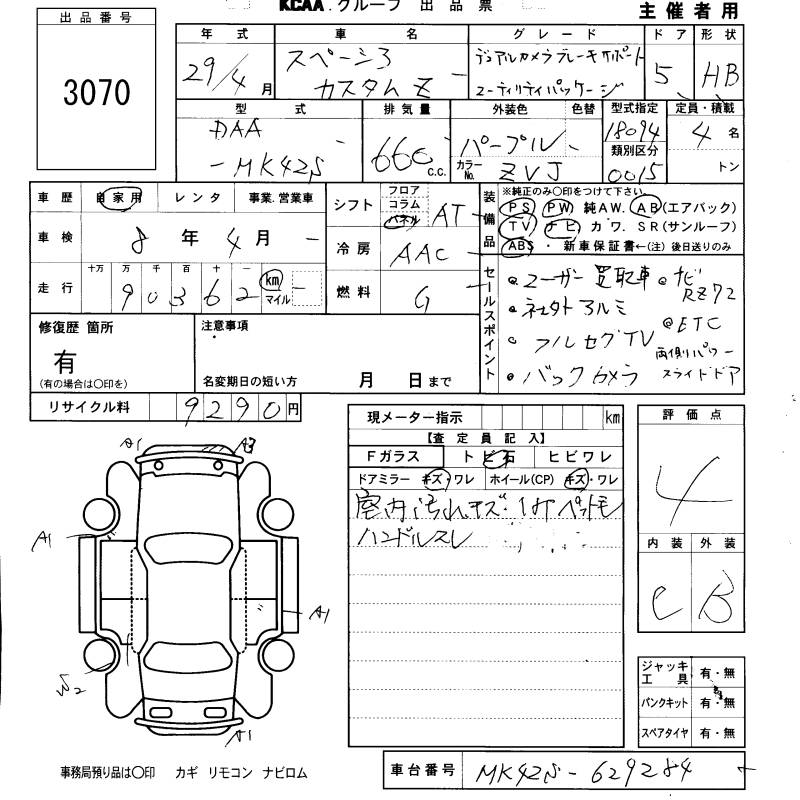 出品番号
3070
KCAA.グループ 出品票
主催者用
年式 車名 グレード ドア 形状
29/4月 スペーシア カスタムZ デュアルカメラブレーキサポート ユーティリティパッケージ 5 HB
型式 排気量 外装色 色替 型式指定 定員・積載
DAA
-MK42S 660 c.c. パープル カラーNo. ZVJ 18094 類別区分 0015 4名 トン
車歴 自家用 レンタ 事業.営業車
車検 8年4月
走行 十万 万 千 百 十 一
90362 km マイル
シフト フロア コラム パネル AT
冷房 AAC
燃料 G
装備品
※純正のみ〇印をつけて下さい
PS PW 純AW. AB(エアバック)
TV ナビ カワ. SR(サンルーフ)
ABS ・ 新車保証書←(注) 後日送りのみ
セールスポイント
ユーザー買取車 ナビ RZ72
社外アルミ ETC
フルセグTV 両側パワースライドドア
バックカメラ
修復歴 箇所
有
(有の場合は〇印を)
注意事項
名変期日の短い方 月 日まで
リサイクル料 9290円
現メーター指示 km
【査定員記入】
Fガラス トビ石 ヒビワレ
ドアミラー キズ・ワレ ホイール(CP) キズ・ワレ
室内汚れキズ・
ハンドルスレ
評価点
4
内装 外装
C B
A1
A1
A1
W2
A1
ジャッキ工具 有・無
パンクキット 有・無
スペアタイヤ 有・無
事務局預り品は〇印 カギ リモコン ナビロム
車台番号 MK42S-629284